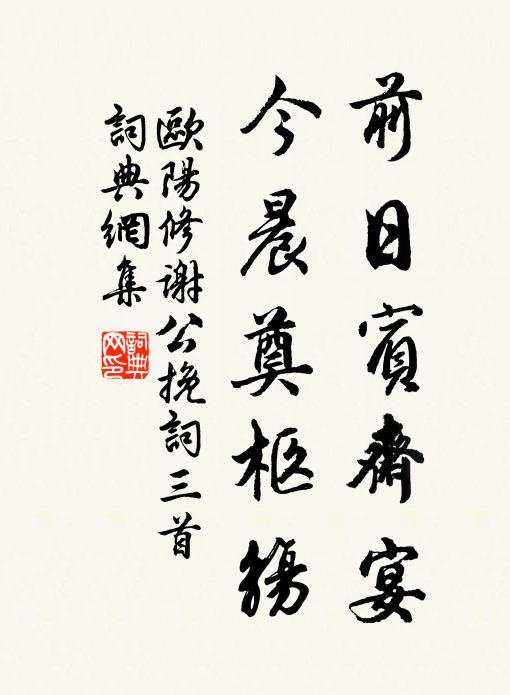 前日賓齋宴
今晨奠柩觴
歐陽修謝公挽詞三首
詞典網集
詞典網印